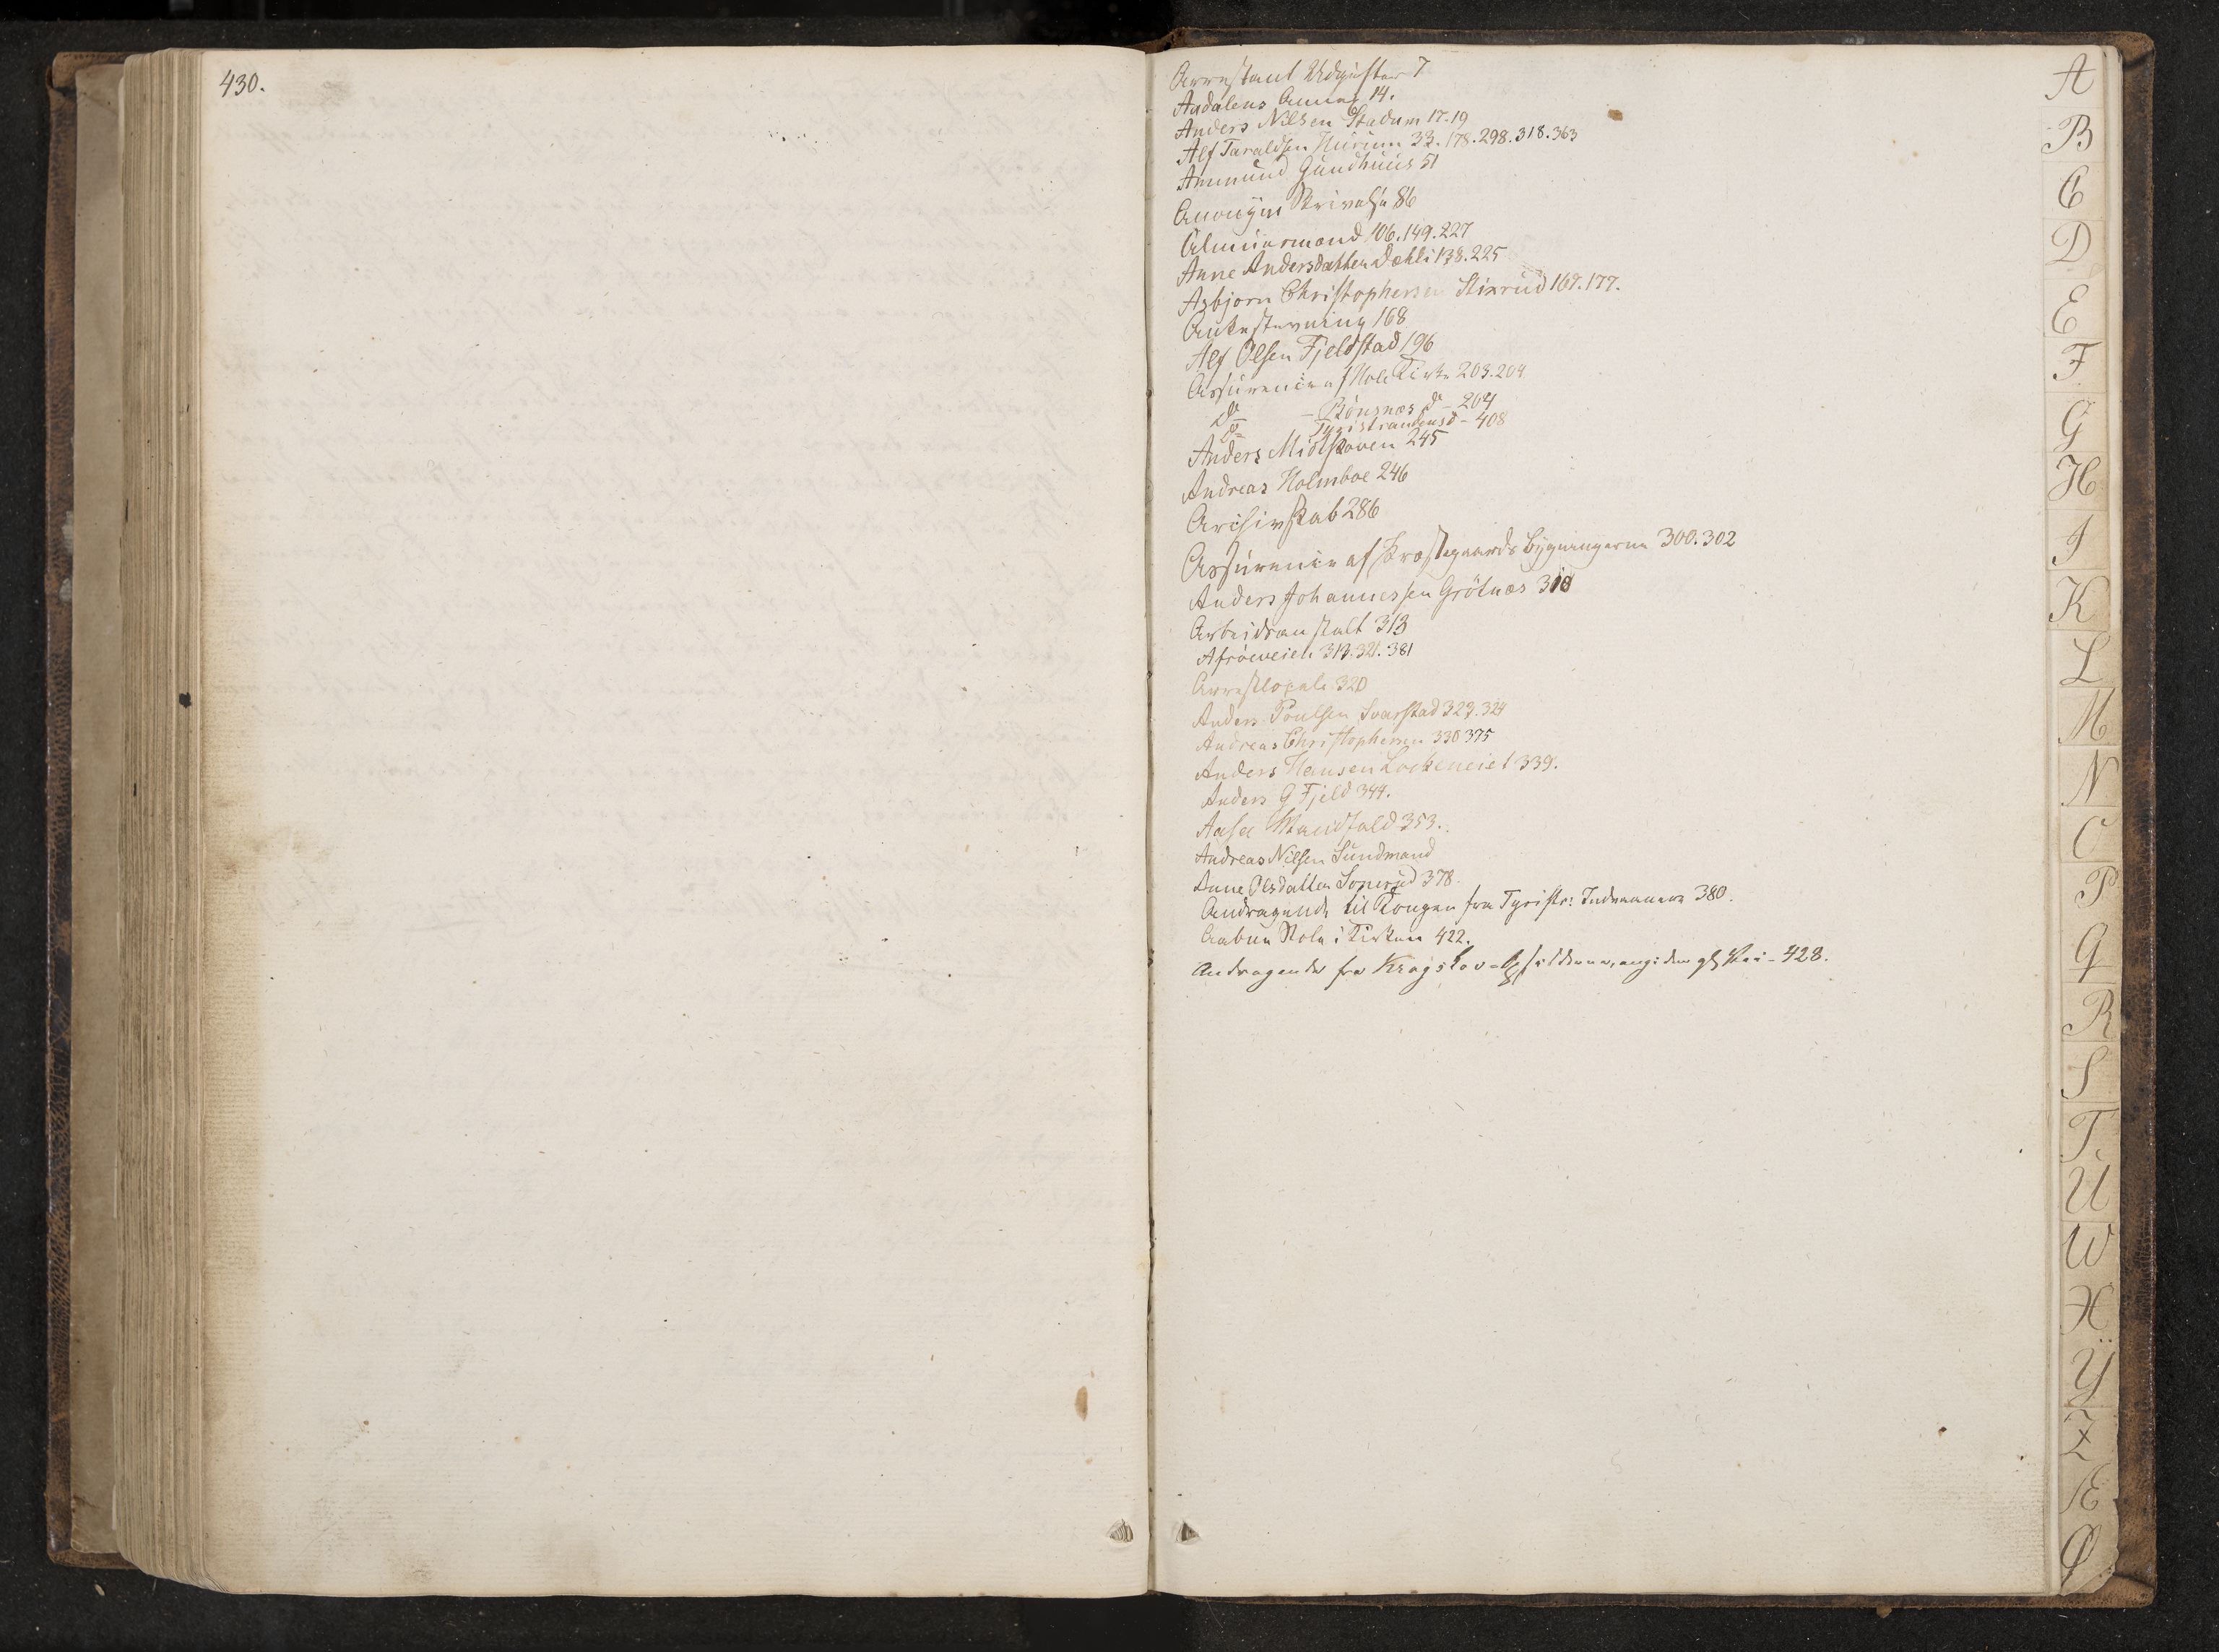 430.
Arrestant Udgifter 7
Andalens Annex 14.
Anders Nilsen Stadum 17.19
Alf Taraldsen Hurum 33.178.298.318.363
Ammund Gundhuus 51
Anonym Skrivelse 86
Almuemænd 106.149.227
Anne Andersdatter Dæhli 138.225
Asbjørn Christophersen Stixrud 167.177.
Ankestevning 168
Alf Olsen Fjeldstad 196
Assurance af Hole Kirke 203.204
do - Bönsnæs do - 204
do Tyristrandens do - 408
Anders Midtskoven 245
Andreas Holmboe 246
Archivskab 286
Assurance af Præstegaards Bygningerne 300.302
Anders Johannessen Grötnæs 310
Arbeidsanstalt 313
Asröeveien 317.321.381
Arrestlocale 320
Anders Poulsen Svarstad 323.324
Andreas Christophersen 330 375
Anders Hansen Lockeneiet 339.
Anders G Fjeld 344.
Aasa 353.
Andreas Nilsen Sundmand
Anne Olsdatter Sonerud 378.
Andragende til Kongen fra Tyristr: Indvaanere 380.
Aabne Stole i Kirken 422.
Andragende fra Krogskov-Opsidderne, ang: den gl. Vei - 428.
A
B
C
D
E
F
G
H
I
K
L
M
N
O
P
Q
R
S
T
U
W
X
Ÿ
Z
Æ
Ø